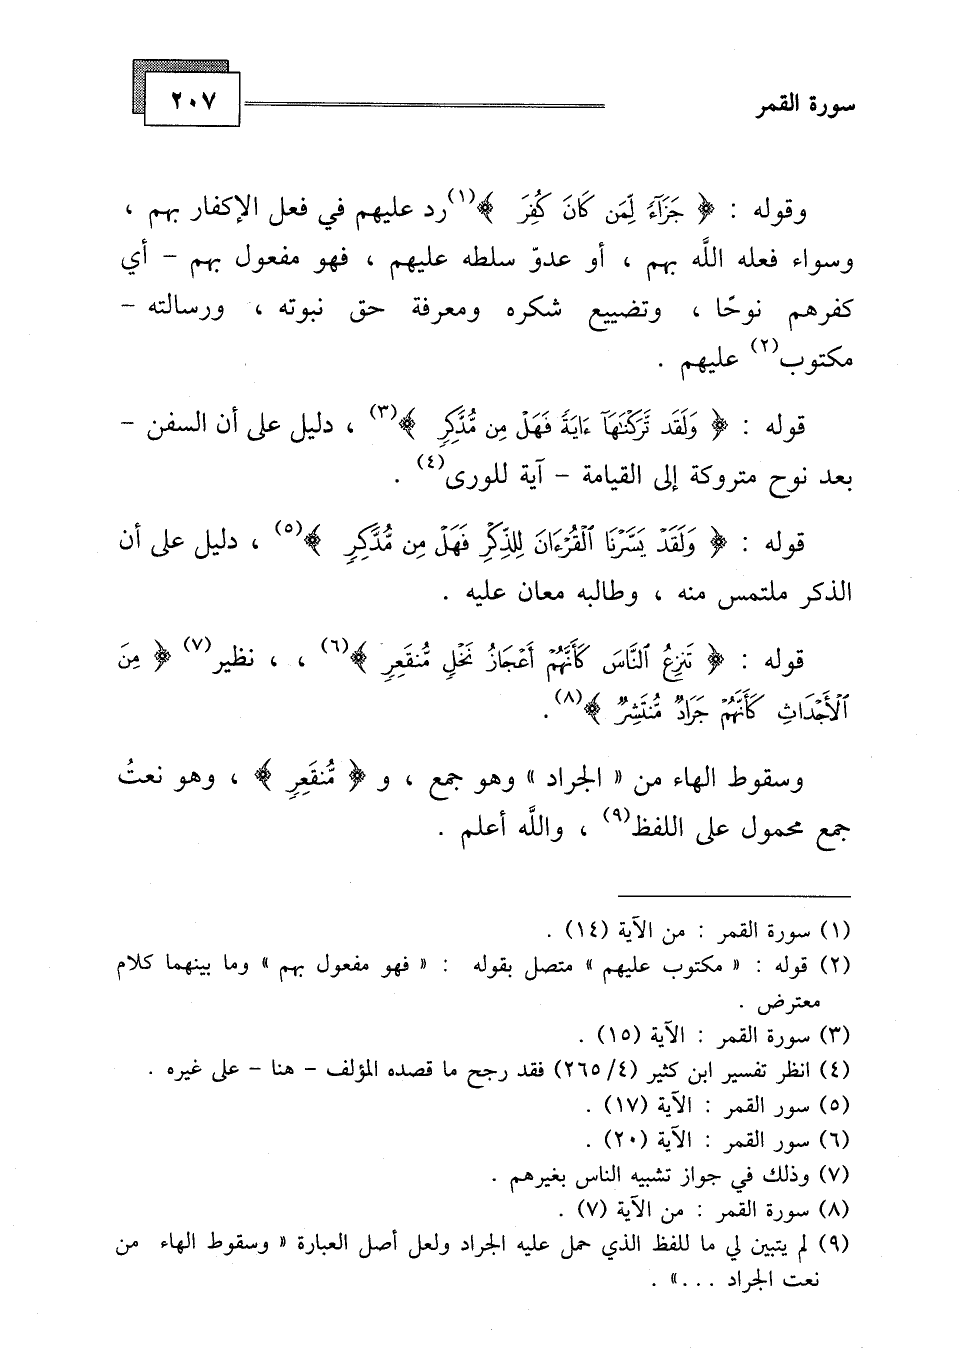 سورة القمر
٢٠٧
وقوله : ﴿ جَزَآءً لِّمَن كَانَ كُفِرَ ﴾(١)رد عليهم في فعل الإكفار بهم ،
وسواء فعله اللَّه بهم ، أو عدوّ سلطه عليهم ، فهو مفعول بهم – أي
كفرهم نوحًا ، وتضييع شكره ومعرفة حق نبوته ، ورسالته –
مكتوب(٢) عليهم .
قوله : ﴿ وَلَقَد تَّرَكْنَٰهَآ ءَايَةً فَهَلْ مِن مُّدَّكِرٍ ﴾(٣) ، دليل على أن السفن –
بعد نوح متروكة إلى القيامة – آية للورى(٤) .
قوله : ﴿ وَلَقَدْ يَسَّرْنَا ٱلْقُرْءَانَ لِلذِّكْرِ فَهَلْ مِن مُّدَّكِرٍ ﴾(٥) ، دليل على أن
الذكر ملتمس منه ، وطالبه معان عليه .
قوله : ﴿ تَنزِعُ ٱلنَّاسَ كَأَنَّهُمْ أَعْجَازُ نَخْلٍ مُّنقَعِرٍ ﴾(٦) ، ، نظير(٧) ﴿ مِنَ
ٱلْأَجْدَاثِ كَأَنَّهُمْ جَرَادٌ مُّنتَشِرٌ ﴾(٨).
وسقوط الهاء من « الجراد » وهو جمع ، و ﴿ مُّنقَعِرٍ ﴾ ، وهو نعتُ
جمع محمول على اللفظ(٩) ، واللَّه أعلم .
(١) سورة القمر : من الآية (١٤) .
(٢) قوله : « مكتوب عليهم » متصل بقوله : « فهو مفعول بهم » وما بينهما كلام
معترض .
(٣) سورة القمر : الآية (١٥) .
(٤) انظر تفسير ابن كثير (٢٦٥/٤) فقد رجح ما قصده المؤلف – هنا – على غيره .
(٥) سور القمر : الآية (١٧) .
(٦) سور القمر : الآية (٢٠) .
(٧) وذلك في جواز تشبيه الناس بغيرهم .
(٨) سورة القمر : من الآية (٧) .
(٩) لم يتبين لي ما للفظ الذي حمل عليه الجراد ولعل أصل العبارة « وسقوط الهاء من
نعت الجراد ...» .